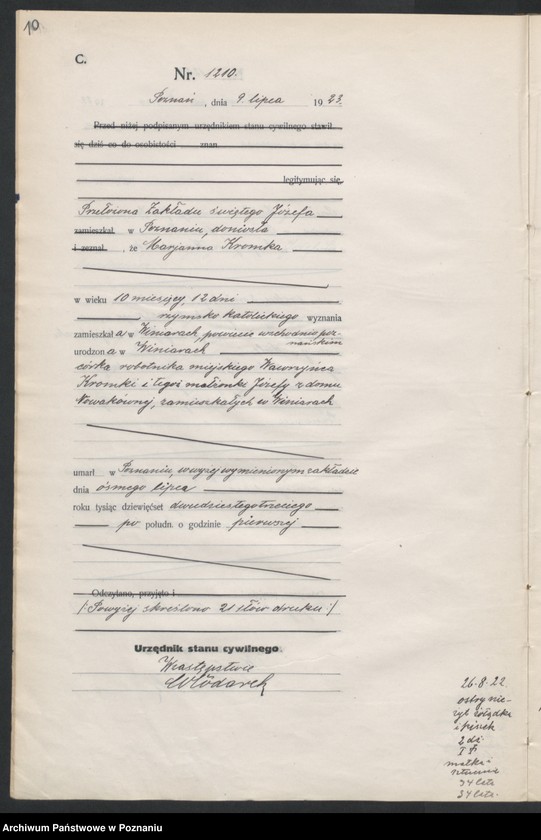 10
C.
Nr. 1210.
Poznań, dnia 9 lipca 1923.
Przed niżej podpisanym urzędnikiem stanu cywilnego stawił
się dziś co do osobistości znan
legitymując się,
Przełożona Zakładu świętego Józefa
zamieszkał w Poznaniu, doniosła
i zeznał , że Marjanna Kromka
w wieku 10 miesięcy, 12 dni
rzymsko katolickiego wyznania
zamieszkała w Winiarach, powiecie wschodnio poz-
nańskim
urodzona w Winiarach
córka robotnika miejskiego Wawrzyńca
Kromki i tegoż małżonki Józefy z domu
Nowakównej, zamieszkałych w Winiarach
umarł w Poznaniu, w wyżej wymienionym zakładzie
dnia ósmego lipca
roku tysiąc dziewięćset dwudziestegotrzeciego
po połudn. o godzinie pierwszej
Odczytano, przyjęto i
/: Powyżej skreślono 21 słów druku :/
Urzędnik stanu cywilnego.
W zastępstwie
Włodarek
26.8.22.
ostry nie-
żyt żołądka
i kiszek
2 dni
matka
34 lata.
Archiwum Państwowe w Poznaniu